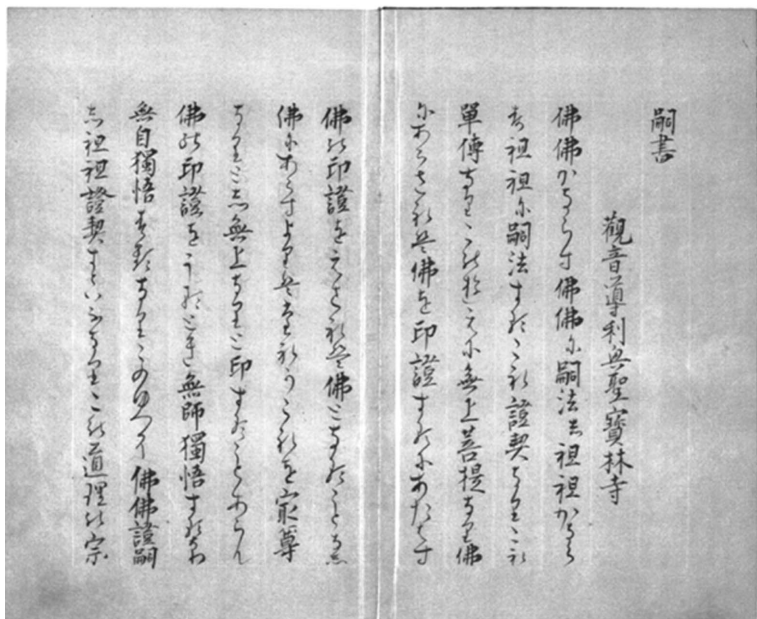 嗣書
觀音導利興聖寶林寺
佛佛かならす佛佛に嗣法し祖祖かなら
す祖祖に嗣法するこれ證契なりこれ
單傳なりこのゆえに無上菩提なり佛
にあらされは佛を印證するにあたはす
佛の印證をえされは佛となることなし
佛にあらすよりはたれかこれを最尊
なりとし無上なりと印することあらん
佛の印證をうるとき無師獨悟するなり
無自獨悟するなりこのゆへに佛佛證嗣
し祖祖證契すといふなりこの道理の宗